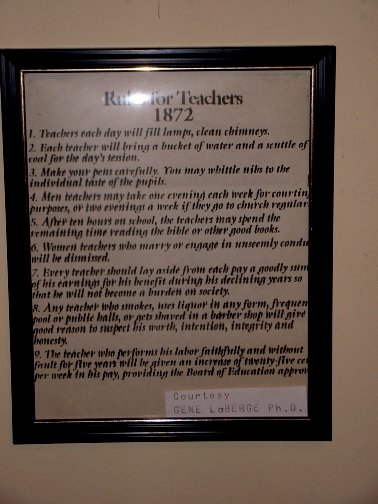 Rules for Teachers
1872
1. Teachers each day will fill lamps, clean chimneys.
2. Each teacher will bring a bucket of water and a scuttle of
coal for the day's session.
3. Make your pens carefully. You may whittle nibs to the
individual taste of the pupils.
4. Men teachers may take one evening each week for courtin
purposes, or two evenings a week if they go to church regular
5. After ten hours on school, the teachers may spend the
remaining time reading the bible or other good books.
6. Women teachers who marry or engage in unseemly condu
will be dismissed.
7. Every teacher should lay aside from each pay a goodly sum
of his earnings for his benefit during his declining years so
that he will not become a burden on society.
8. Any teacher who smokes, uses liquor in any form, frequen
pool or public halls, or gets shaved in a barber shop will give
good reason to suspect his worth, intention, integrity and
honesty.
9. The teacher who performs his labor faithfully and without
fault for five years will be given an increase of twenty-five cen
per week in his pay, providing the Board of Education approv
Courtesy
GENE LaBERGE Ph.D.